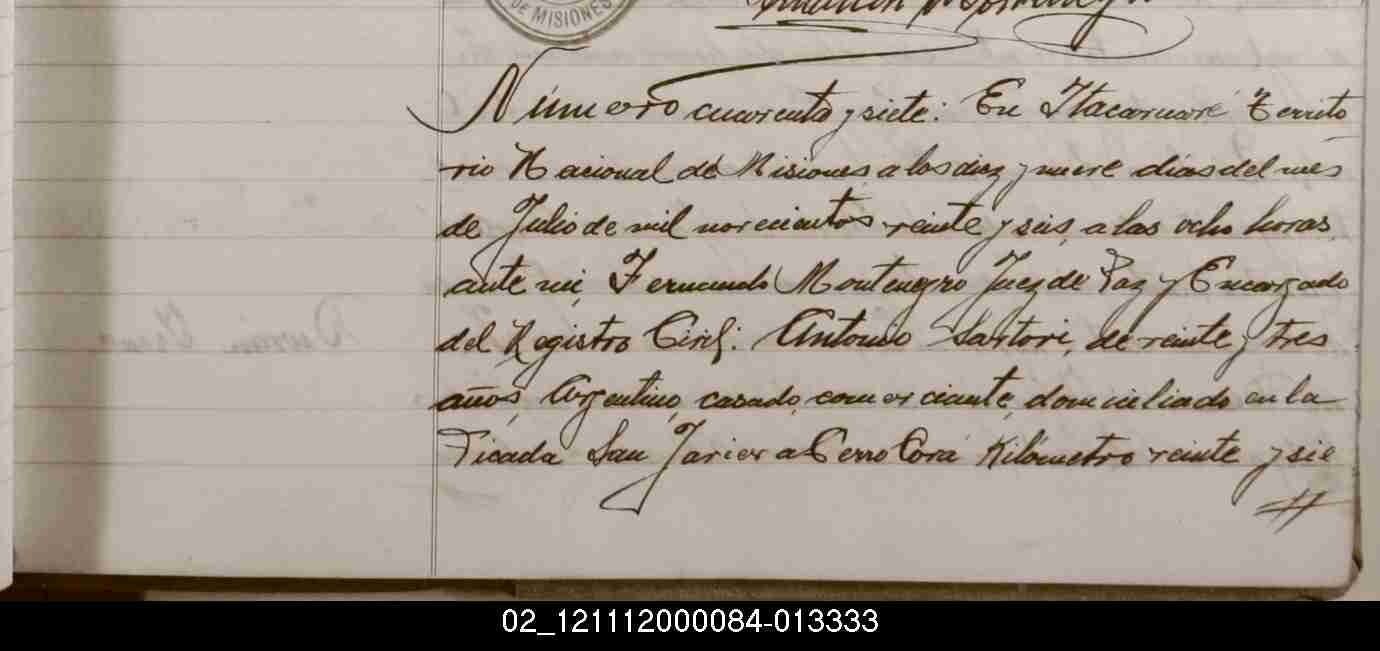 DE MISIONES
Número cuarenta y siete: En Itacaruaré Territo
rio Nacional de Misiones a los diez y nueve días del mes
de Julio de mil novecientos veinte y seis, a las ocho horas
ante mi, Fernando Montenegro Juez de Paz y Encargado
del Registro Civil: Antonio Sartori, de veinte y tres
años, Argentino, casado, comerciante, domiciliado en la
Picada San Javier a Cerro Corá Kilómetro veinte y sie
02_121112000084-013333